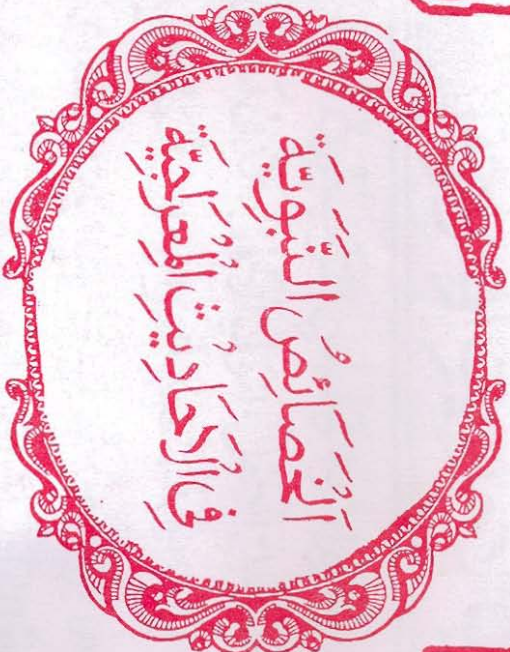 الْخَصَائِصُ النَّبَوِيَّة
فِي الْأَحَادِيْثِ الْمِعْرَاجِيَّة